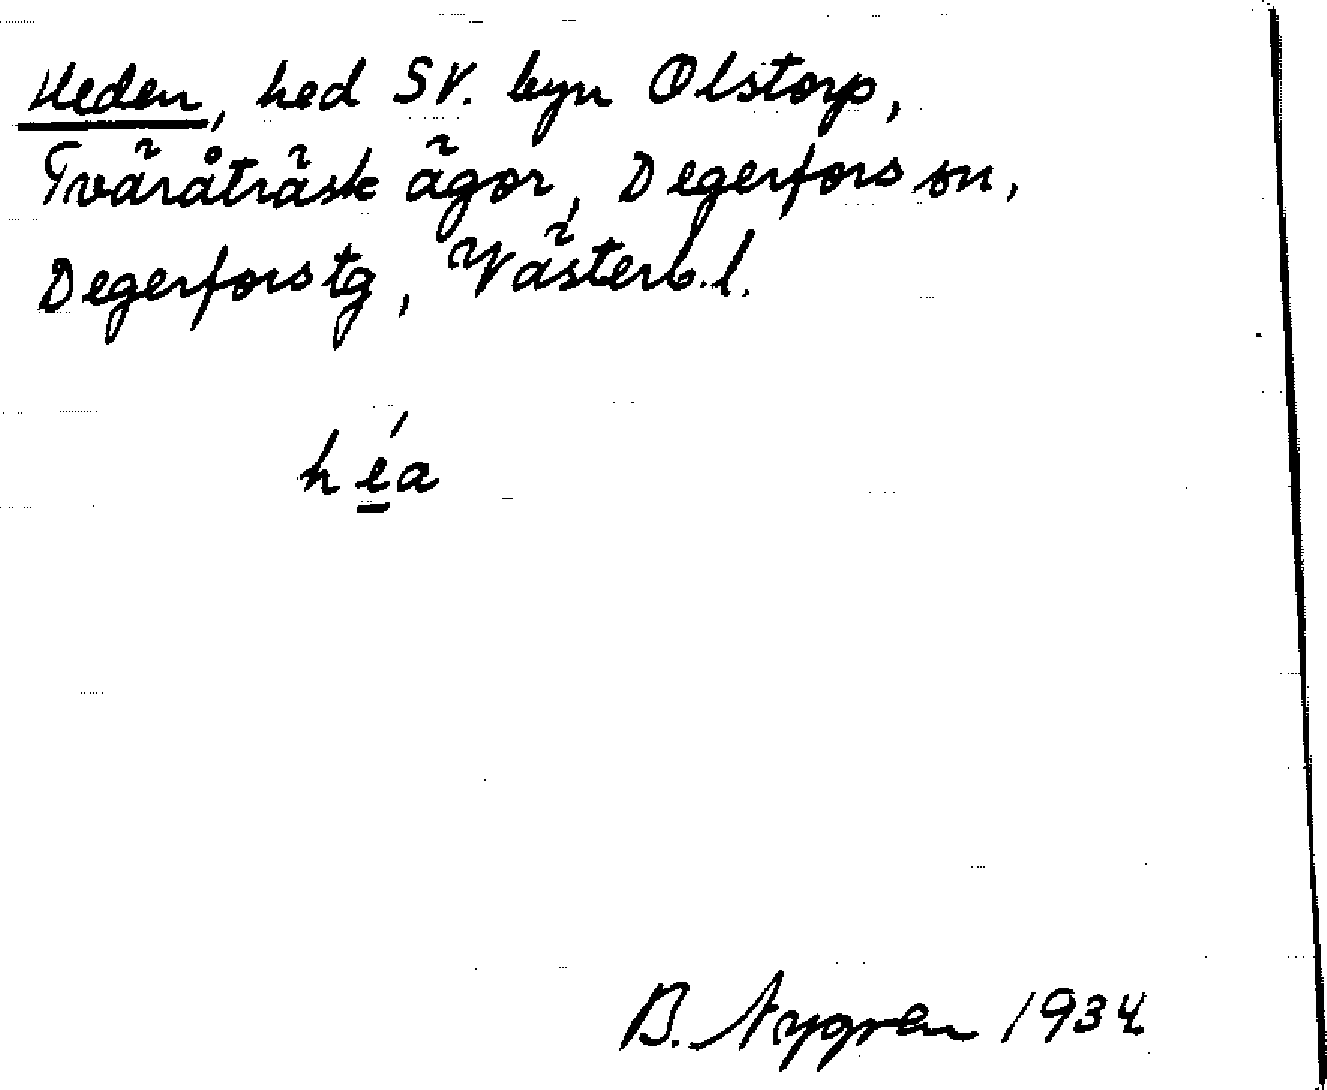 Heden, hed SV. byn Olstorp,
Tväråträsk ägor, Degerfors sn,
Degerfors tg, Västerb. l.
héa
B. Nygren 1934